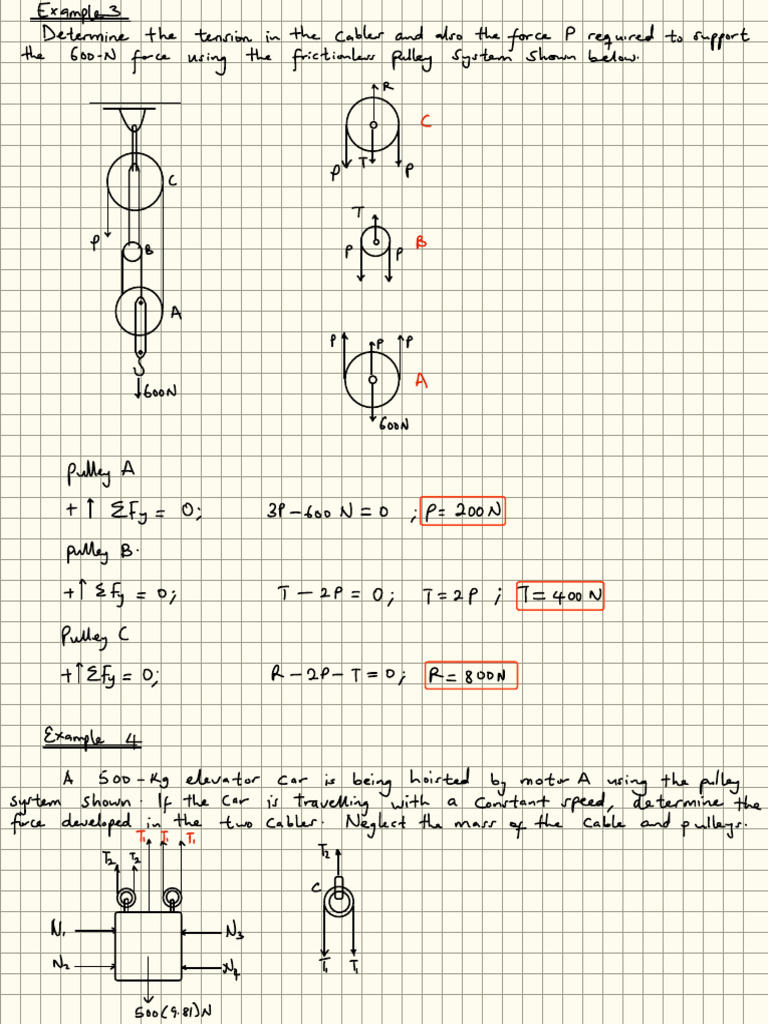 Example 3
Determine the tension in the cables and also the force P required to support
the 600-N force using the frictionless pulley system shown below.
R
C
P T P
C
P
T
B
P P B
A
P P P
A
600N
600N
Pulley A
+↑ ΣFy = 0; 3P-600 N = 0 ; P = 200N
Pulley B.
+↑ ΣFy = 0; T - 2P = 0; T = 2P ; T = 400 N
Pulley C
+↑ ΣFy = 0; R - 2P - T = 0; R = 800N
Example 4
A 500-Kg elevator car is being hoisted by motor A using the pulley
system shown. If the car is travelling with a constant speed, determine the
force developed in the two cables. Neglect the mass of the cable and pulleys.
T₁ T₁ T₁
T₂ T₂ T₂
C
N₁ N₃
N₂ N₄ T₁ T₁
500(9.81)N